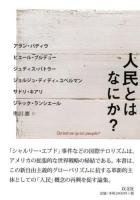 人民とは
なにか？
アラン・バディウ
ピエール・ブルデュー
ジュディス・バトラー
ジョルジュ・ディディ=ユベルマン
サドリ・キアリ
ジャック・ランシエール
市川崇 訳
Qu'est-ce qu'un peuple?
「シャルリー・エブド」事件などの国際テロリズムは、
アメリカの屈折的な世界戦略の帰結である。本書は、
この新自由主義的グローバリズムに抗する革新的主
体としての「人民」概念の再興を促す論集。
以文社